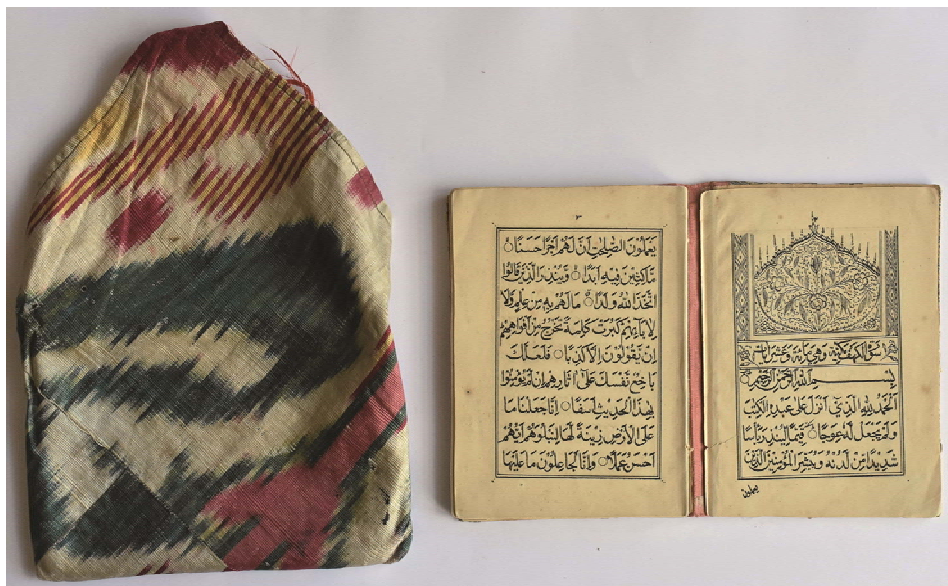 سورة الكهف مكية وهي مائة وعشر
بِسْمِ اللهِ الرَّحْمٰنِ الرَّحِيْمِ
اَلْحَمْدُ لِلّٰهِ الَّذِيْ اَنْزَلَ عَلٰى عَبْدِهِ الْكِتٰبَ
وَلَمْ يَجْعَلْ لَهُ عِوَجًا ۝ قَيِّمًا لِيُنْذِرَ بَاْسًا
شَدِيْدًا مِنْ لَدُنْهُ وَيُبَشِّرَ الْمُؤْمِنِيْنَ الَّذِيْنَ
يعملون
يَعْمَلُوْنَ الصّٰلِحٰتِ اَنَّ لَهُمْ اَجْرًا حَسَنًا ۝
مَاكِثِيْنَ فِيْهِ اَبَدًا ۝ وَيُنْذِرَ الَّذِيْنَ قَالُوْا
اتَّخَذَ اللهُ وَلَدًا ۝ مَا لَهُمْ بِهِ مِنْ عِلْمٍ وَلَا
لِاٰبَائِهِمْ كَبُرَتْ كَلِمَةً تَخْرُجُ مِنْ اَفْوَاهِهِمْ
اِنْ يَقُوْلُوْنَ اِلَّا كَذِبًا ۝ فَلَعَلَّكَ
بَاخِعٌ نَفْسَكَ عَلٰى اٰثَارِهِمْ اِنْ لَمْ يُؤْمِنُوْا
بِهٰذَا الْحَدِيْثِ اَسَفًا ۝ اِنَّا جَعَلْنَا مَا
عَلَى الْاَرْضِ زِيْنَةً لَهَا لِنَبْلُوَهُمْ اَيُّهُمْ
اَحْسَنُ عَمَلًا ۝ وَاِنَّا لَجَاعِلُوْنَ مَا عَلَيْهَا